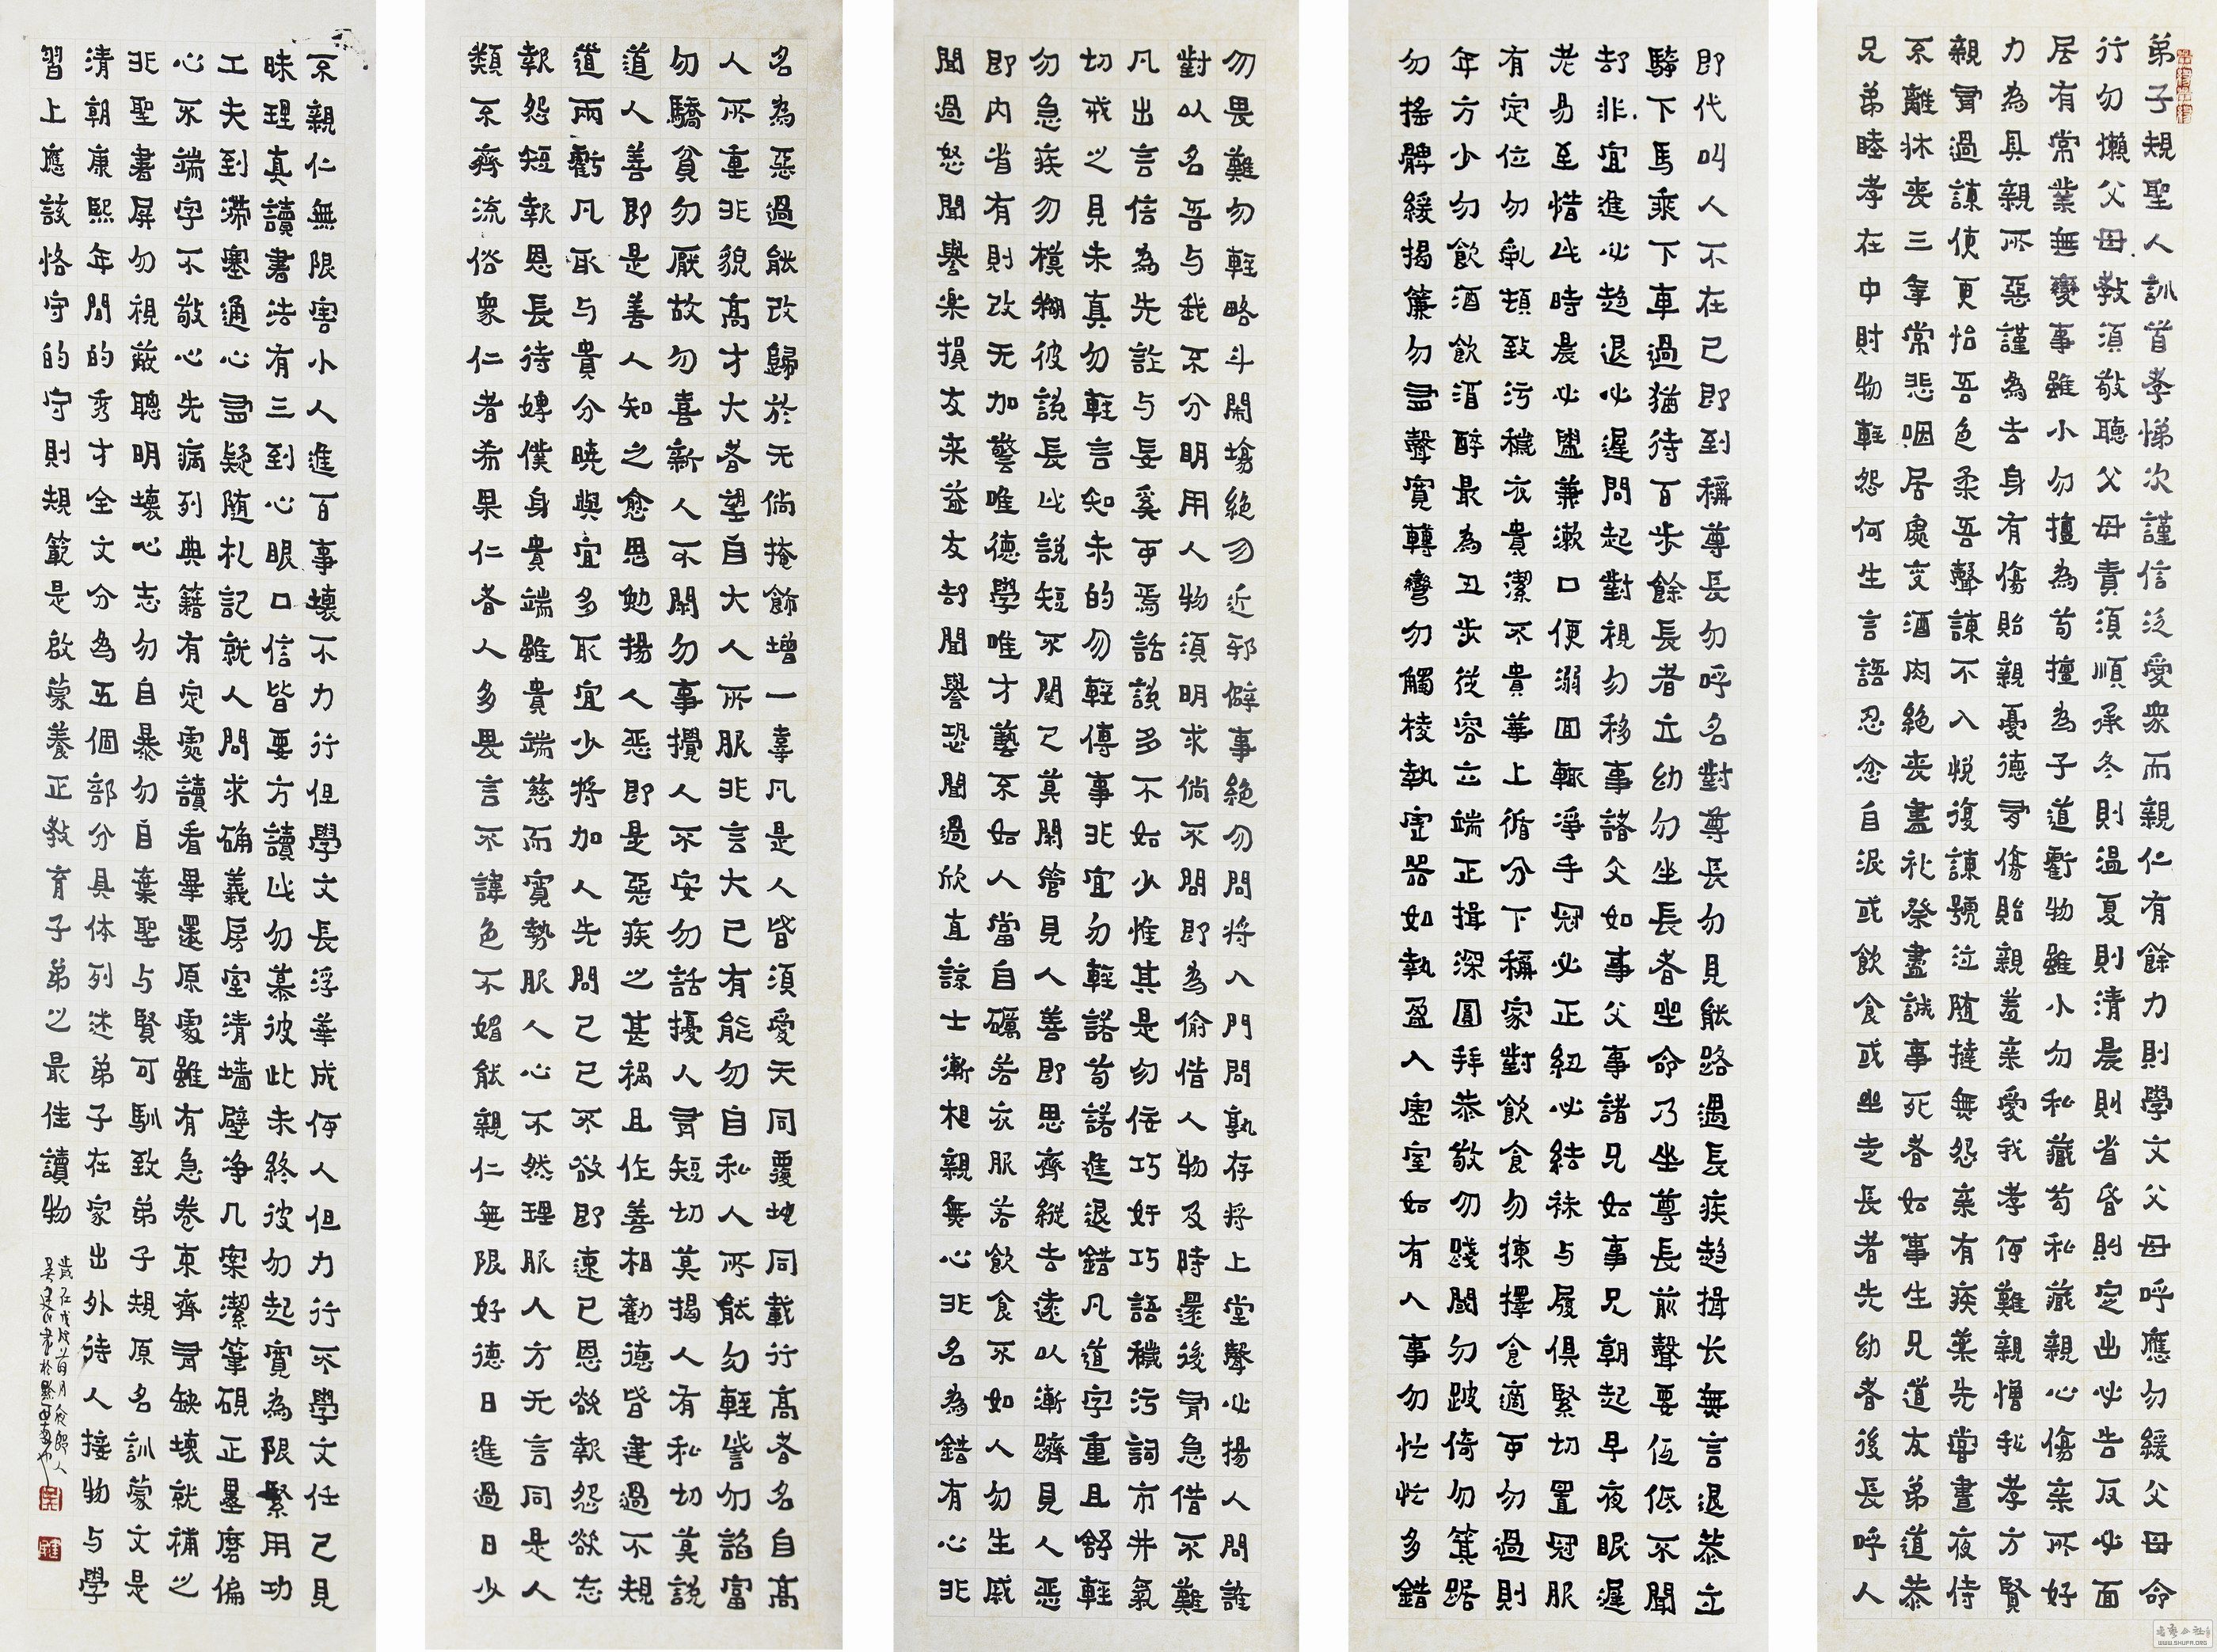 弟子規聖人訓首孝悌次謹信泛愛衆而親仁有餘力則學文父母呼應勿緩父母命
行勿懶父母教須敬聽父母責須順承冬則温夏則清晨則省昏則定出必告反必面
居有常業無變事雖小勿擅為苟擅為子道虧物雖小勿私藏苟私藏親心傷亲所好
力為具親所惡謹為去身有傷貽親憂德有傷貽親羞亲愛我孝何難親憎我孝方賢
親有過諫使更怡吾色柔吾聲諫不入悅復諫號泣随撻無怨亲有疾藥先嘗晝夜侍
不離床喪三年常悲咽居處变酒肉絕喪盡礼祭盡誠事死者如事生兄道友弟道恭
兄弟睦孝在中財物輕怨何生言語忍忿自泯或飲食或坐走長者先幼者後長呼人
即代叫人不在己即到稱尊長勿呼名對尊長勿見能路遇長疾趨揖长無言退恭立
騎下馬乘下車過猶待百步餘長者立幼勿坐長者坐命乃坐尊長前聲要低低不聞
却非宜進必趋退必遲問起對視勿移事諸父如事父事諸兄如事兄朝起早夜眠遲
老易至惜此時晨必盥兼漱口便溺回輒淨手冠必正紐必結袜与履俱緊切置冠服
有定位勿乱頓致污穢衣貴潔不貴華上循分下稱家對飲食勿揀擇食適可勿過則
年方少勿飲酒飲酒醉最為丑步從容立端正揖深圓拜恭敬勿踐閾勿跛倚勿箕踞
勿搖髀緩揭簾勿有聲寬轉彎勿觸棱執虛器如執盈入虛室如有人事勿忙忙多錯
勿畏難勿輕略斗鬧場絕勿近邪僻事絕勿問將入門問孰存將上堂聲必揚人問誰
對以名吾与我不分明用人物須明求倘不問即為偷借人物及時還後有急借不難
凡出言信為先詐与妄奚可焉話說多不如少惟其是勿佞巧奸巧語穢污詞市井氣
切戒之見未真勿輕言知未的勿輕傳事非宜勿輕諾苟諾進退錯凡道字重且舒輕
勿急疾勿模糊彼說長此說短不關己莫閑管見人善即思齊縱去遠以漸躋見人恶
即内省有則改无加警唯德學唯才藝不如人當自礪若衣服若飲食不如人勿生戚
聞過怒聞譽楽損友来益友却聞譽恐聞過欣直諒士漸相親無心非名為錯有心非
名為惡過能改歸於无倘掩飾增一辜凡是人皆須愛天同覆地同載行高者名自高
人所重非貌高才大者望自大人所服非言大己有能勿自私人所能勿輕訾勿諂富
勿驕貧勿厭故勿喜新人不閑勿事攪人不安勿話擾人有短切莫揭人有私切莫說
道人善即是善人知之愈思勉揚人恶即是惡疾之甚祸且作善相勸德皆建過不規
道兩虧凡取与貴分曉與宜多取宜少將加人先問己己不欲即速已恩欲報怨欲忘
報怨短報恩長待婢僕身貴端雖貴端慈而寬勢服人心不然理服人方无言同是人
類不齊流俗衆仁者希果仁者人多畏言不諱色不媚能親仁無限好德日進過日少
不親仁無限害小人進百事壞不力行但學文長浮華成何人但力行不學文任己見
昧理真讀書法有三到心眼口信皆要方讀此勿慕彼此未終彼勿起寬為限緊用功
工夫到滯塞通心有疑随札記就人問求确義房室清墙壁净几案潔筆硯正墨磨偏
心不端字不敬心先病列典籍有定處讀看畢還原處雖有急卷束齊有缺壞就補之
非聖書屏勿視蔽聰明壞心志勿自暴勿自棄聖与賢可馴致弟子規原名訓蒙文是
清朝康熙年間的秀才全文分為五個部分具体列述弟子在家出外待人接物与學
習上應該恪守的守則規範是啟蒙養正教育子弟之最佳讀物
歲在戊戌
WWW.SHUFA.ORG